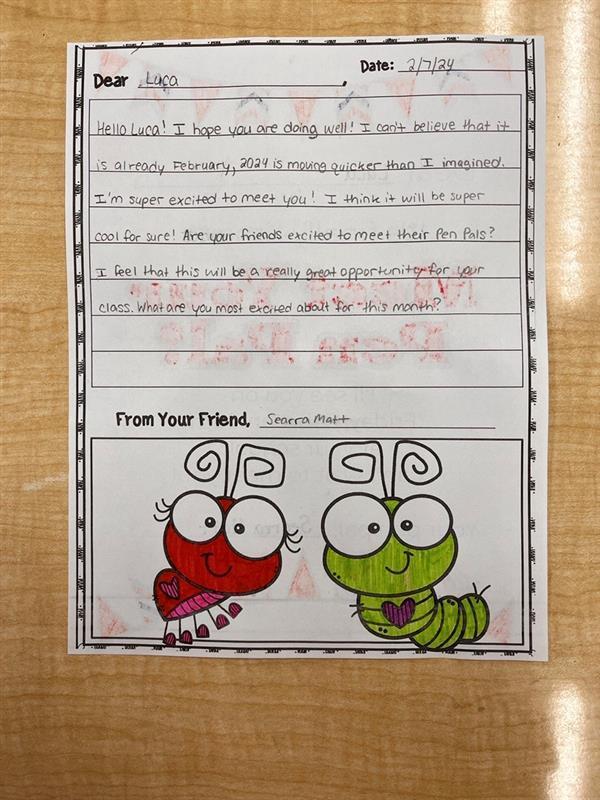 Date: 2/7/24
Dear Luca,
Hello Luca! I hope you are doing well! I can't believe that it
is already February, 2024 is moving quicker than I imagined.
I'm super excited to meet you! I think it will be super
cool for sure! Are your friends excited to meet their Pen Pals?
I feel that this will be a really great opportunity for your
class. What are you most excited about for this month?
From Your Friend, Searra Matt